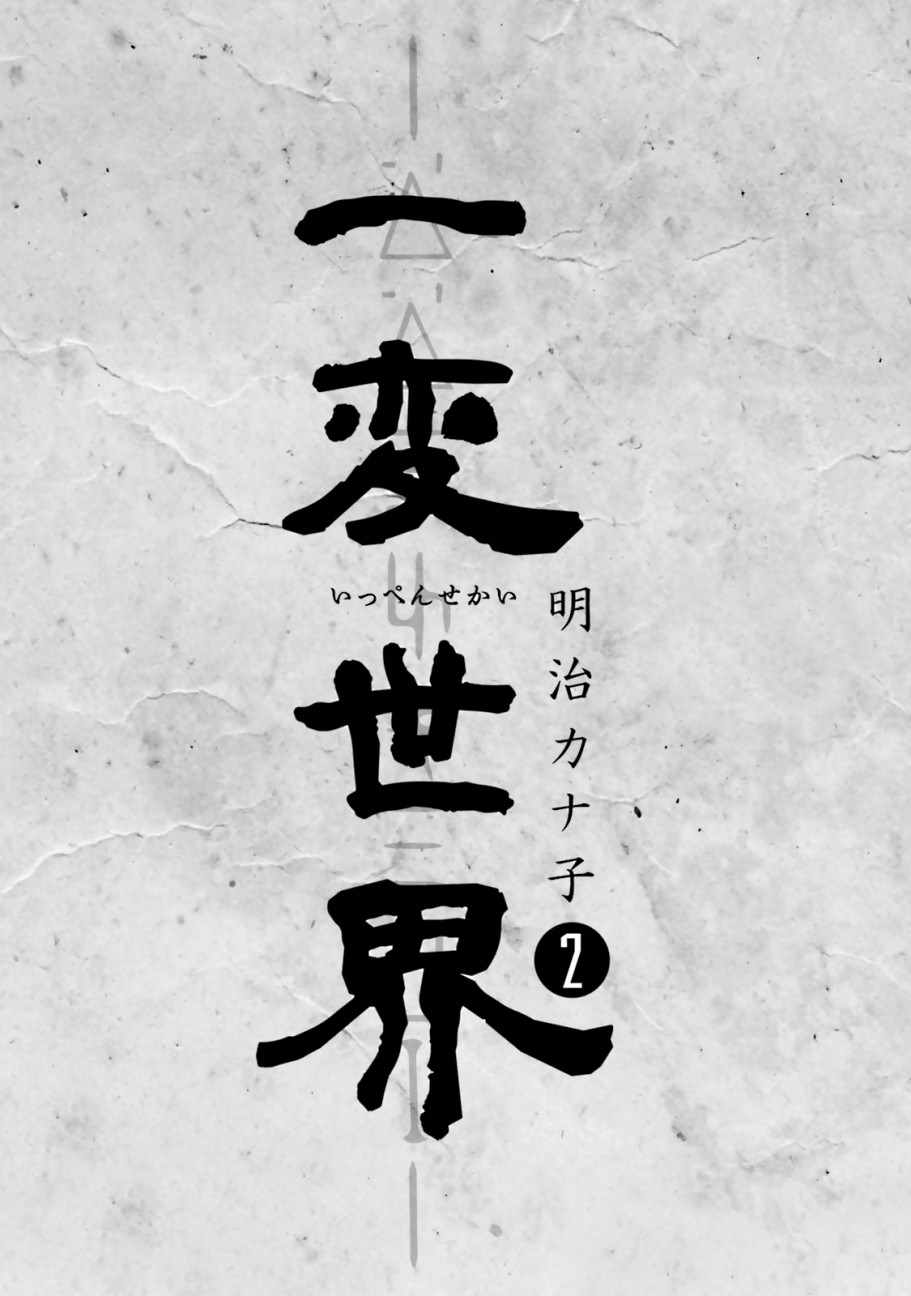 一変世界
いっぺんせかい
明治カナ子
2